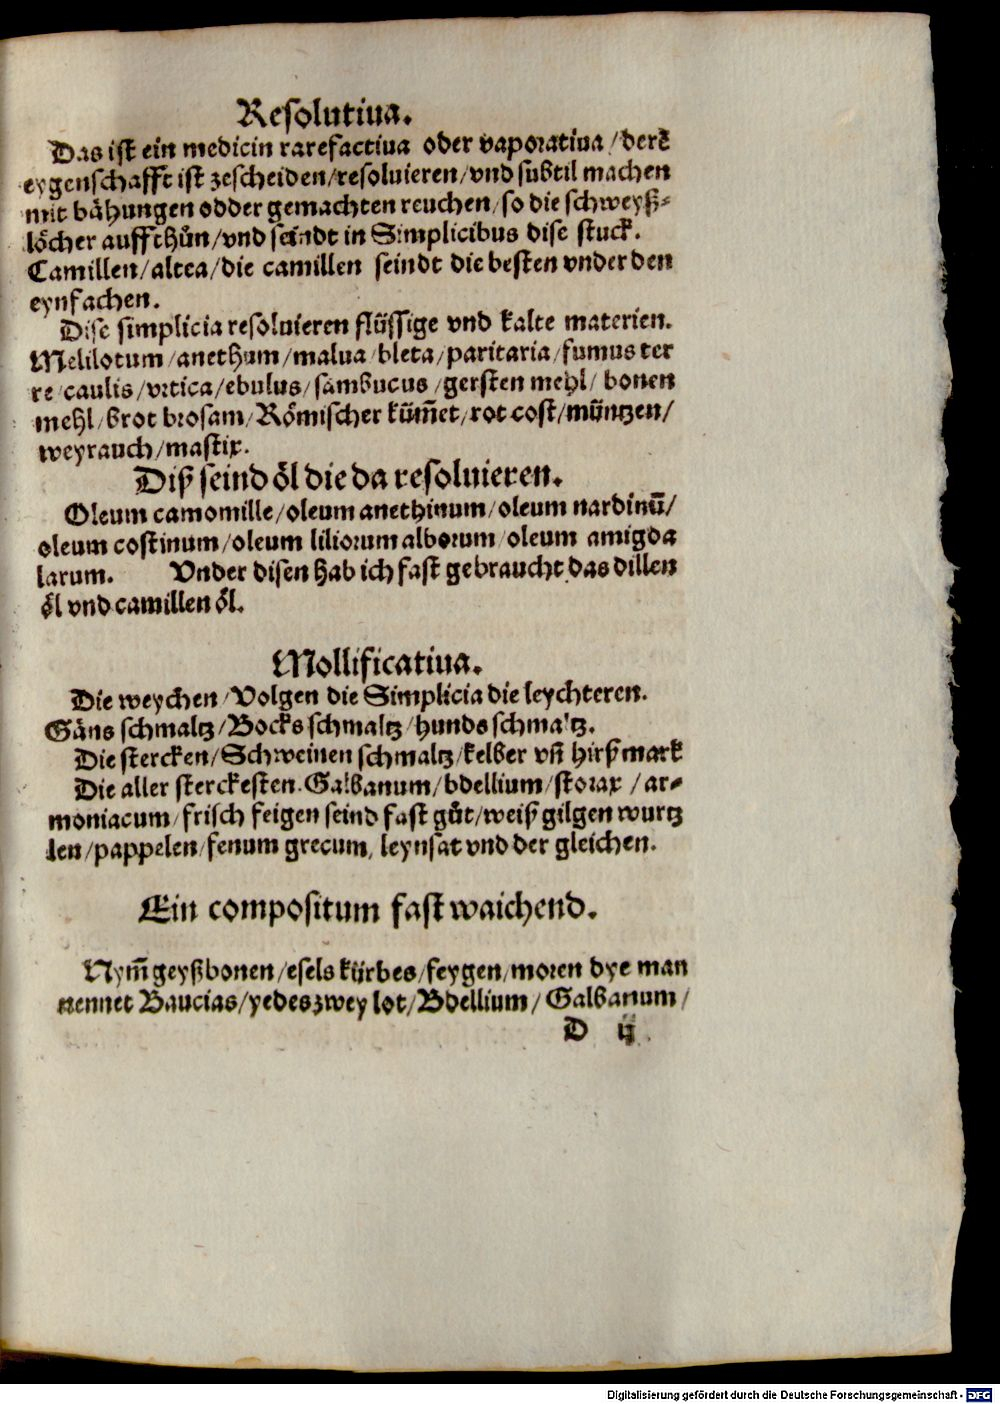 Resolutiua.
Das ist ein medicin rarefactiua oder vaporatiua / derẽ
eygenschafft ist zescheiden / resoluieren / vnd subtil machen
mit bähungen odder gemachten reuchen / so die schweyß⸗
löcher auffthůn / vnd seindt in Simplicibus dise stuck.
Camillen / altea / die camillen seindt die besten vnder den
eynfachen.
Dise simplicia resoluieren flüssige vnd kalte materien.
Melilotum / anethum / malua / bleta / paritaria / fumus ter
re / caulis / vrtica / ebulus / sambucus / gersten mehl / bonen
mehl / brot brosam / Römischer küm̃et / rot cost / müntzen /
weyrauch / mastix.
Diß seind öl die da resoluieren.
Oleum camomille / oleum anethinum / oleum nardinũ /
oleum costinum / oleum liliorum alborum / oleum amigda
larum. Vnder disen hab ich fast gebraucht das dillen
öl vnd camillen öl.
Mollificatiua.
Die weychen / Volgen die Simplicia die leychteren.
Gäns schmaltz / Bocks schmaltz / hunds schmaltz.
Die stercken / Schweinen schmaltz / kelber vñ hirß mark
Die aller sterckesten. Galbanum / bdellium / storax / ar⸗
moniacum / frisch feigen seind fast gůt / weiß gilgen wurtz
len / pappelen / fenum grecum / leynsat vnd der gleichen.
Ein compositum fast waichend.
Nym̃ geyßbonen / esels kürbes / feygen / moren dye man
nennet Baucias / yedes zwey lot / Bdellium / Galbanum /
D ij
Digitalisierung gefördert durch die Deutsche Forschungsgemeinschaft - DFG